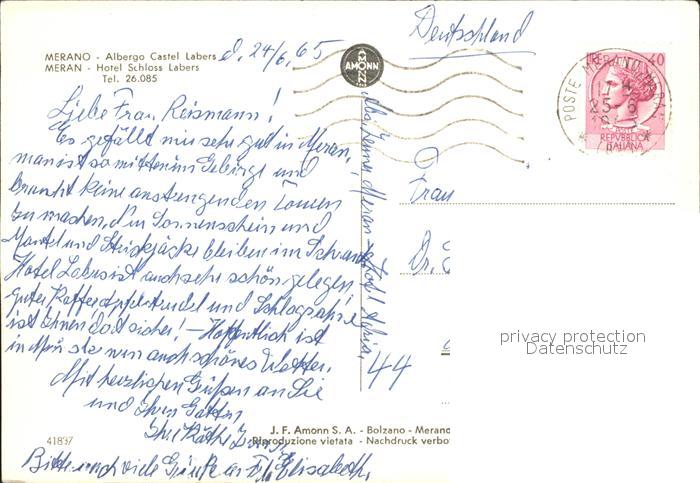 Deutschland
MERANO - Albergo Castel Labers
MERAN - Hotel Schloss Labers
Tel. 26.085
d. 24/6. 65
AMONN
AMONN
Liebe Frau Reismann!
Es gefällt mir sehr gut in Meran,
man ist so mitten im Gebirge und
braucht keine anstrengenden Touren
zu machen, d'rum Sonnenschein und
Mantel und Strickjacke bleiben im Schrank
Hotel Labers ist auch sehr schön gelegen!
guter Kaffee Apfelstrudel und Schlagsahne
ist Ihnen dort sicher! - Hoffentlich ist
in Münster nun auch schönes Wetter.
Mit herzlichen Grüßen an Sie
und Ihren Gatten
Ihre Käthe
Bitte und viele Grüße an Frl. Elisabeth.
Meran
44
POSTE MERANO
25-6
40
REPVBBLICA
ITALIANA
Frau
Dr.
privacy protection
Datenschutz
J. F. Amonn S. A. - Bolzano - Merano
Riproduzione vietata - Nachdruck verbo
41837